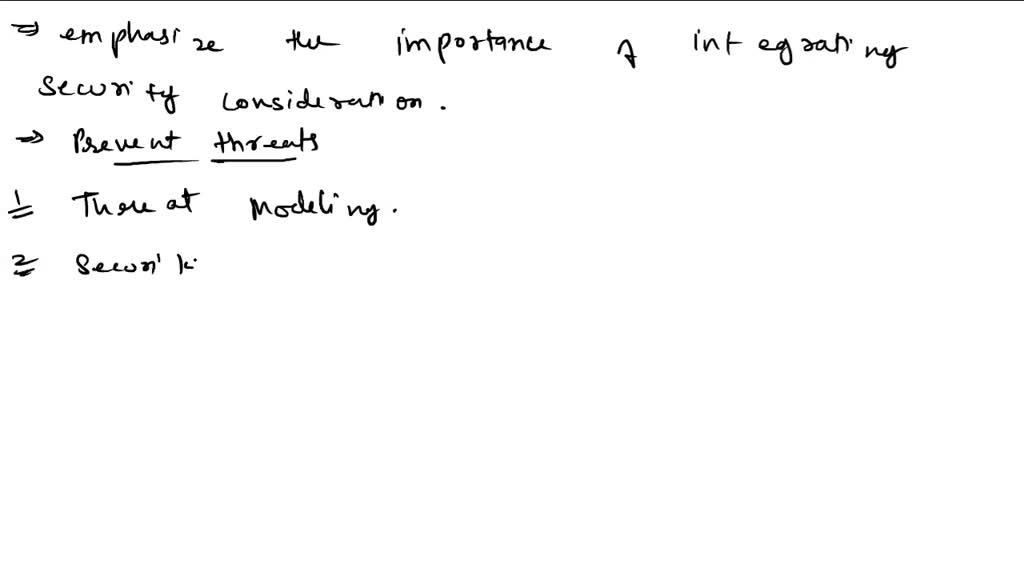 ⇒ emphasize the importance of integrating
security consideration.
⇒ Prevent threats
1 Threat Modeling.
2 Securit